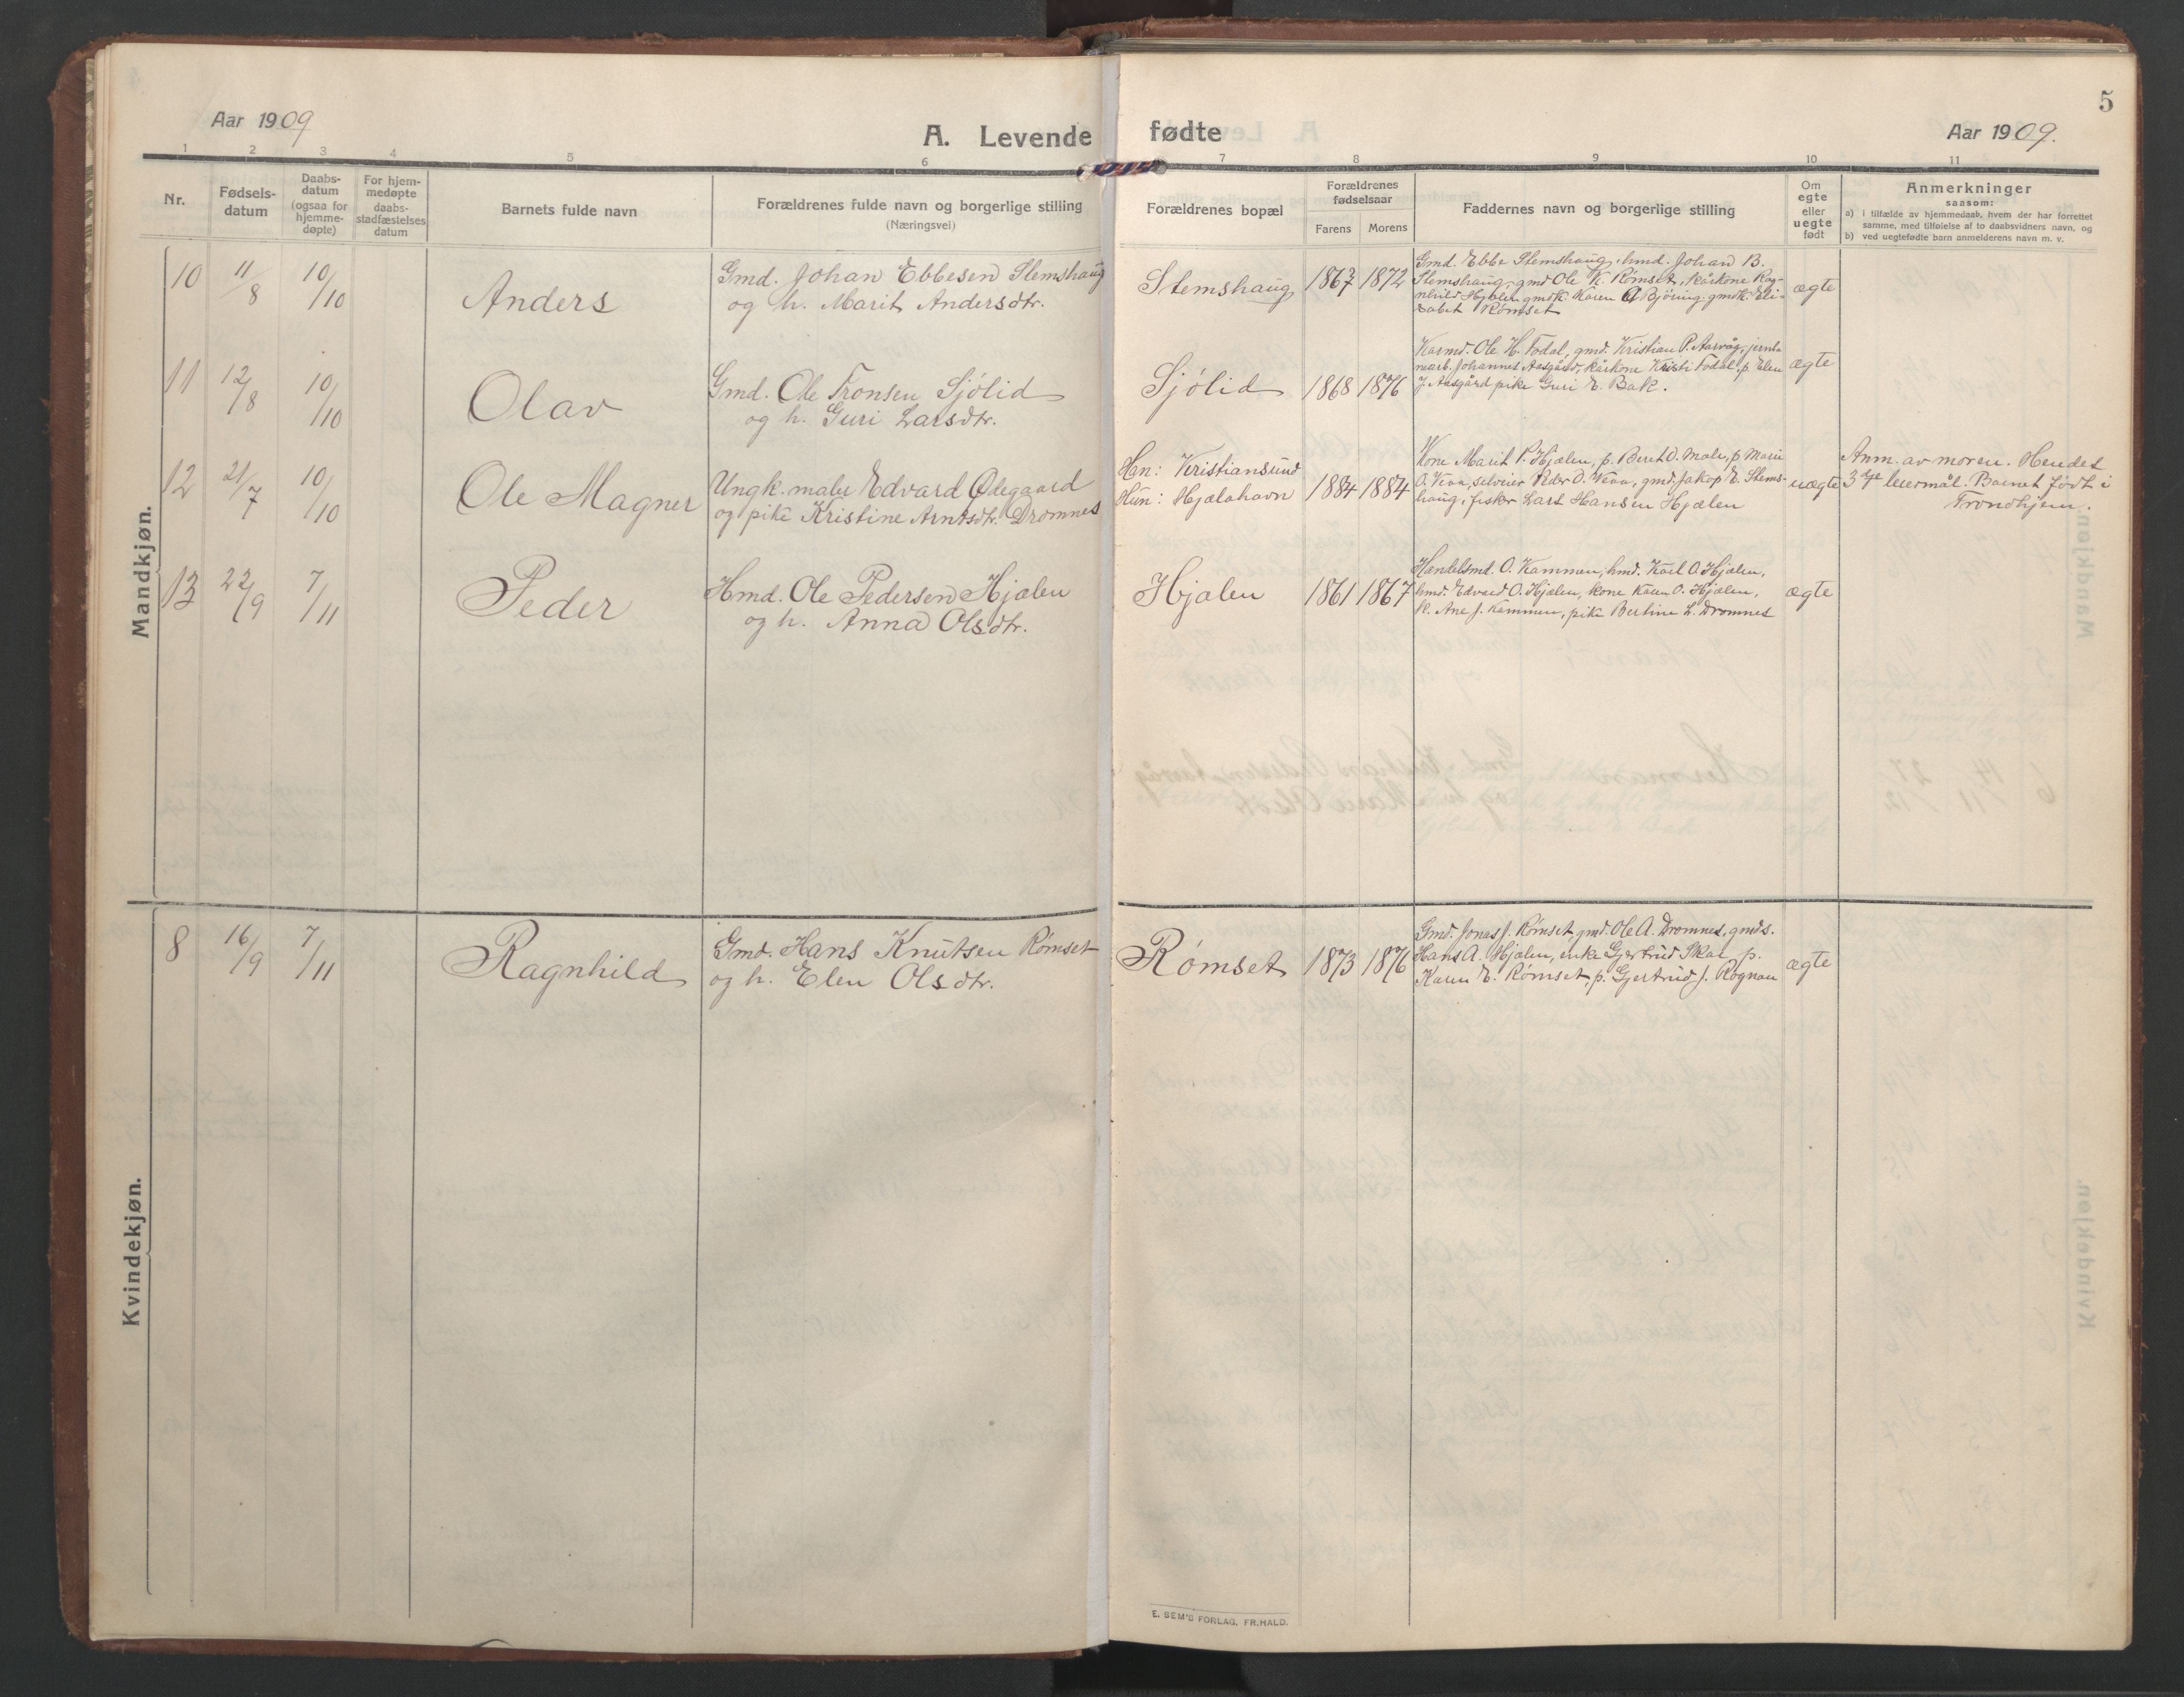 5
Aar 1909
A. Levende fødte
Aar 1909.
1 2 3 4 5 6 7 8 9 10 11
Nr.
Fødsels-
datum
Daabs-
datum
(ogsaa for
hjemme-
døpte)
For hjem-
medøpte
daabs-
stadfæstelses
datum
Barnets fulde navn
Forældrenes fulde navn og borgerlige stilling
(Næringsvei)
Forældrenes bopæl
Forældrenes
fødselsaar
Farens Morens
Faddernes navn og borgerlige stilling
Om
egte
eller
uegte
født
Anmerkninger
saasom:
a) i tilfælde av hjemmedaab, hvem der har forrettet
samme, med tilføielse af to daabsvidners navn, og
b) ved uegtefødte barn anmelderens navn m. v.
Mandkjøn.
10 11/8 10/10
Anders
Gmd. Johan Ebbesen Stemshaug
og h. Marit Andersdtr.
Stemshaug 1867 1872
Gmd. Ebbe Stemshaug, hmd. Johan B.
Stemshaug, gmd Ole K. Rømset, kårkone Rag-
nhild Hjælen gmdk. Karen A Björing. gmdk. Eli-
sabet Rømset
ægte
11 12/8 10/10
Olav
Gmd. Ole Tronsen Sjölid
og h. Guri Larsdtr.
Sjölid 1868 1876
Kaarmd. Ole H. Todal, gmd. Kristian P. Aarvåg, jernba
narb. Johannes Aasgård, kårkone Kristi Todal, p. Elen
J. Aasgård pike Guri E. Bak.
ægte
12 21/7 10/10
Ole Magner
Ungk. maler Edvard Ødegaard
og pike Kristine Arntsdtr. Dromnes
Han: Kristiansund
Hun: Hjælahavn
1884 1884
Kone Marit P. Hjælen, p. Beret O. Male, p Marie
O. Vean, selveier Peder O. Vean, gmd. Jakop E. Stems-
haug, fisker Lars Hansen Hjælen
uægte
Anm. av moren. Hendes
3dje leiermål. Barnet født i
Trondhjem.
13 22/9 7/11
Peder
Hmd. Ole Pedersen Hjælen
og h. Anna Olsdtr.
Hjælen 1861 1867
Handelsmd. O. Kammen, hmd. Karl O. Hjælen,
hmd. Edvard O. Hjælen, kone Karen O. Hjælen,
k. Ane J. Kammen, pike Bertine L. Dromnes
ægte
Kvindekjøn.
8 16/9 7/11
Ragnhild
Gmd. Hans Knutsen Rømset
og h. Elen Olsdtr.
Rømset 1873 1876
Gmd. Jonas J. Rømset, gmd. Ole A. Dromnes, gmds.
Hans A. Hjælen, enke Gjertrud Skar, p.
Karen E. Rømset, p. Gjertrud J. Rognan
ægte
E. SEM'S FORLAG, FR.HALD.